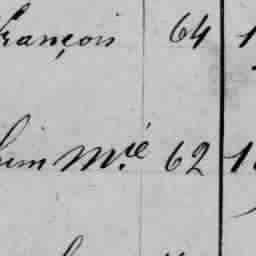 François 64 1
him M.ié 62 1